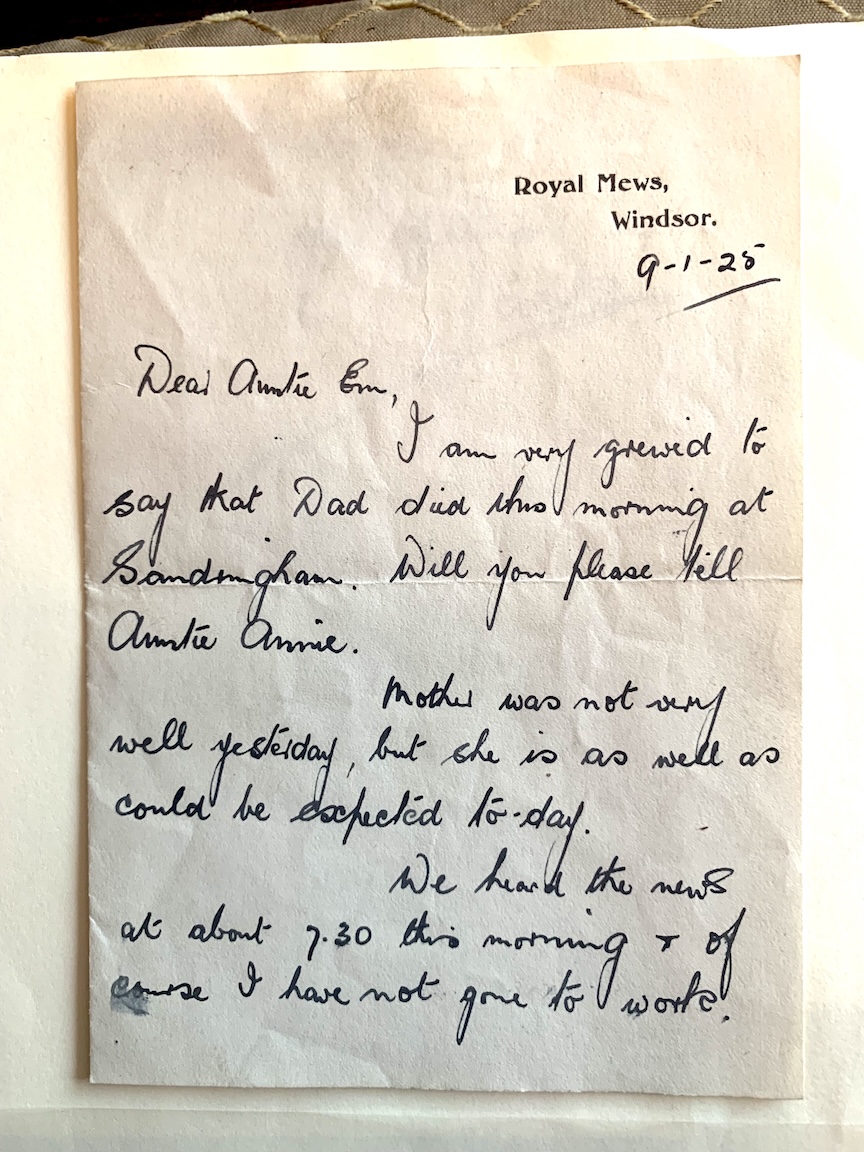 Royal Mews,
Windsor.
9-1-25
Dear Auntie Em,
I am very greived to
say that Dad died this morning at
Sandringham. Will you please tell
Auntie Annie.
Mother was not very
well yesterday, but she is as well as
could be expected to-day.
We heard the news
at about 7.30 this morning & of
course I have not gone to work.